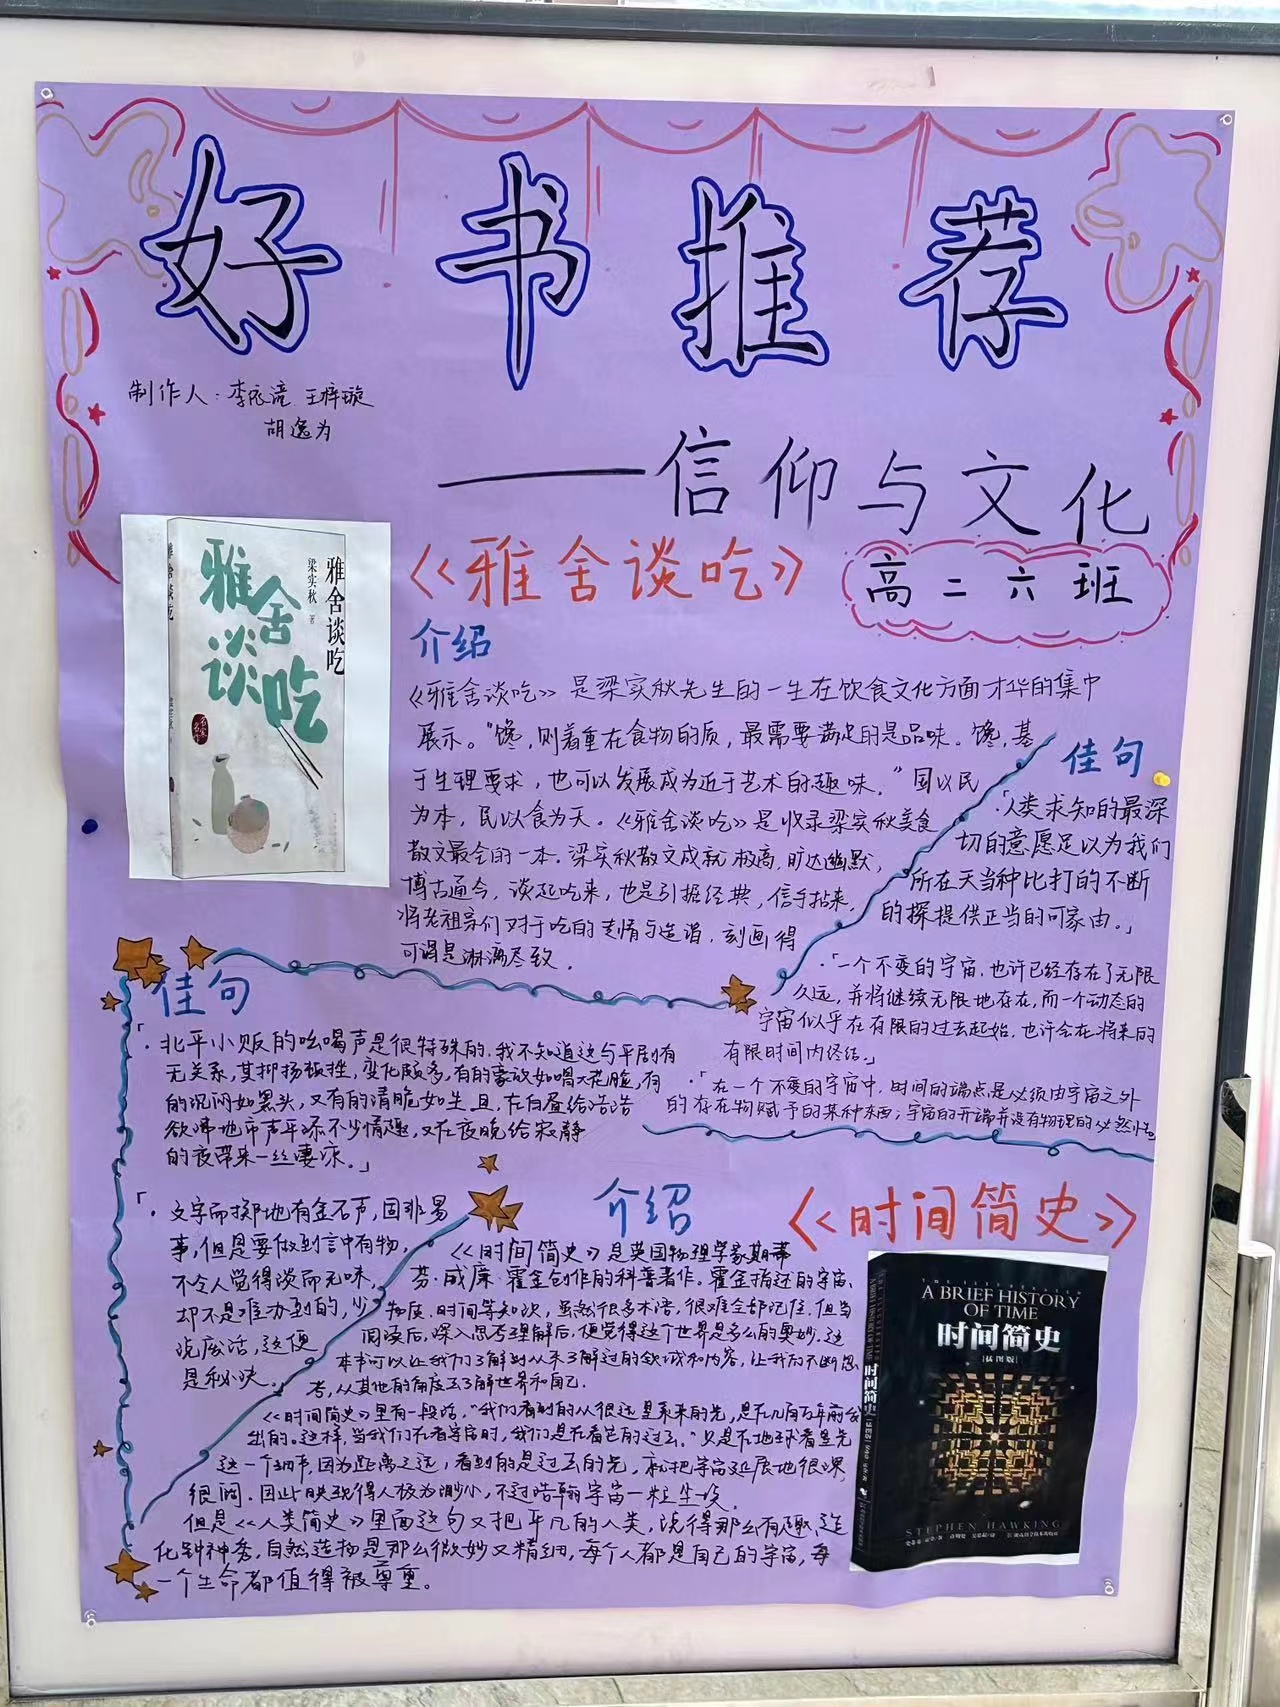 好书推荐
制作人：李依滝 王梓璇
胡逸为
——信仰与文化
高二六班
雅舍谈吃
梁实秋 著
雅舍谈吃
雅舍谈吃
《雅舍谈吃》
介绍
《雅舍谈吃》是梁实秋先生的一生在饮食文化方面才华的集中
展示。"馋，则着重在食物的质，最需要满足的是品味。馋，基
于生理要求，也可以发展成为近于艺术的趣味。"国以民
为本，民以食为天。《雅舍谈吃》是收录梁实秋美食
散文最全的一本。梁实秋散文成就极高，旷达幽默，
博古通今，谈起吃来，也是引据经典，信手拈来，
将老祖宗们对于吃的热情与造诣，刻画得
可谓是淋漓尽致。
佳句
·「人类求知的最深
切的意愿足以为我们
所在天当种比打的不断
的探提供正当的可家由。」
·「一个不变的宇宙，也许已经存在了无限
久远，并将继续无限地存在，而一个动态的
宇宙似乎在有限的过去起始，也许会在将来的
有限时间内终结。」
·「在一个不变的宇宙中，时间的端点是必须由宇宙之外
的存在物赋予的某种东西；宇宙的开端并没有物理的必然性。
佳句
「·北平小贩的吆喝声是很特殊的，我不知道这与平剧有
无关系，其抑扬顿挫，变化颇多，有的豪放如唱大花脸，有
的沉闷如黑头，又有的清脆如生旦，在白昼给浩浩
欲沸地市声平添不少情趣，又在夜晚给寂静
的夜带来一丝凄凉。」
「·文字而掷地有金石声，固非易
事，但是要做到言中有物，
不令人觉得淡而无味，
却不是难办到的，少
说废话，这便
是秘诀。
介绍
《时间简史》
《时间简史》是英国物理学家斯蒂
芬·威廉·霍金创作的科普著作，霍金描述的宇宙、
物质、时间等知识，虽然很多术语，很难全部记住，但当
阅读后，深入思考理解后，便觉得这个世界是多么的奥妙，这
本书可以让我们了解到从未了解过的领域和内容，让我们不断思
考，从其他的角度去了解世界和自己.
《时间简史》里有一段话，"我们看到的从很远星系来的光，是在几百万年前发
出的。这样，当我们在看宇宙时，我们是在看它的过去。"只是在地球看星光
这一个细节，因为距离之远，看到的是过去的光，就把宇宙延展地很深
很阔，因此映现得人极为渺小，不过浩翰宇宙一粒尘埃，
但是《人类简史》里面这句又把平凡的人类，说得那么有趣，造
化钟神秀，自然造物是那么微妙又精细，每个人都是自己的宇宙，每
一个生命都值得被尊重。
THE ILLUSTRATED
A BRIEF HISTORY
OF TIME
时间简史
[插图版]
时间简史
STEPHEN HAWKING